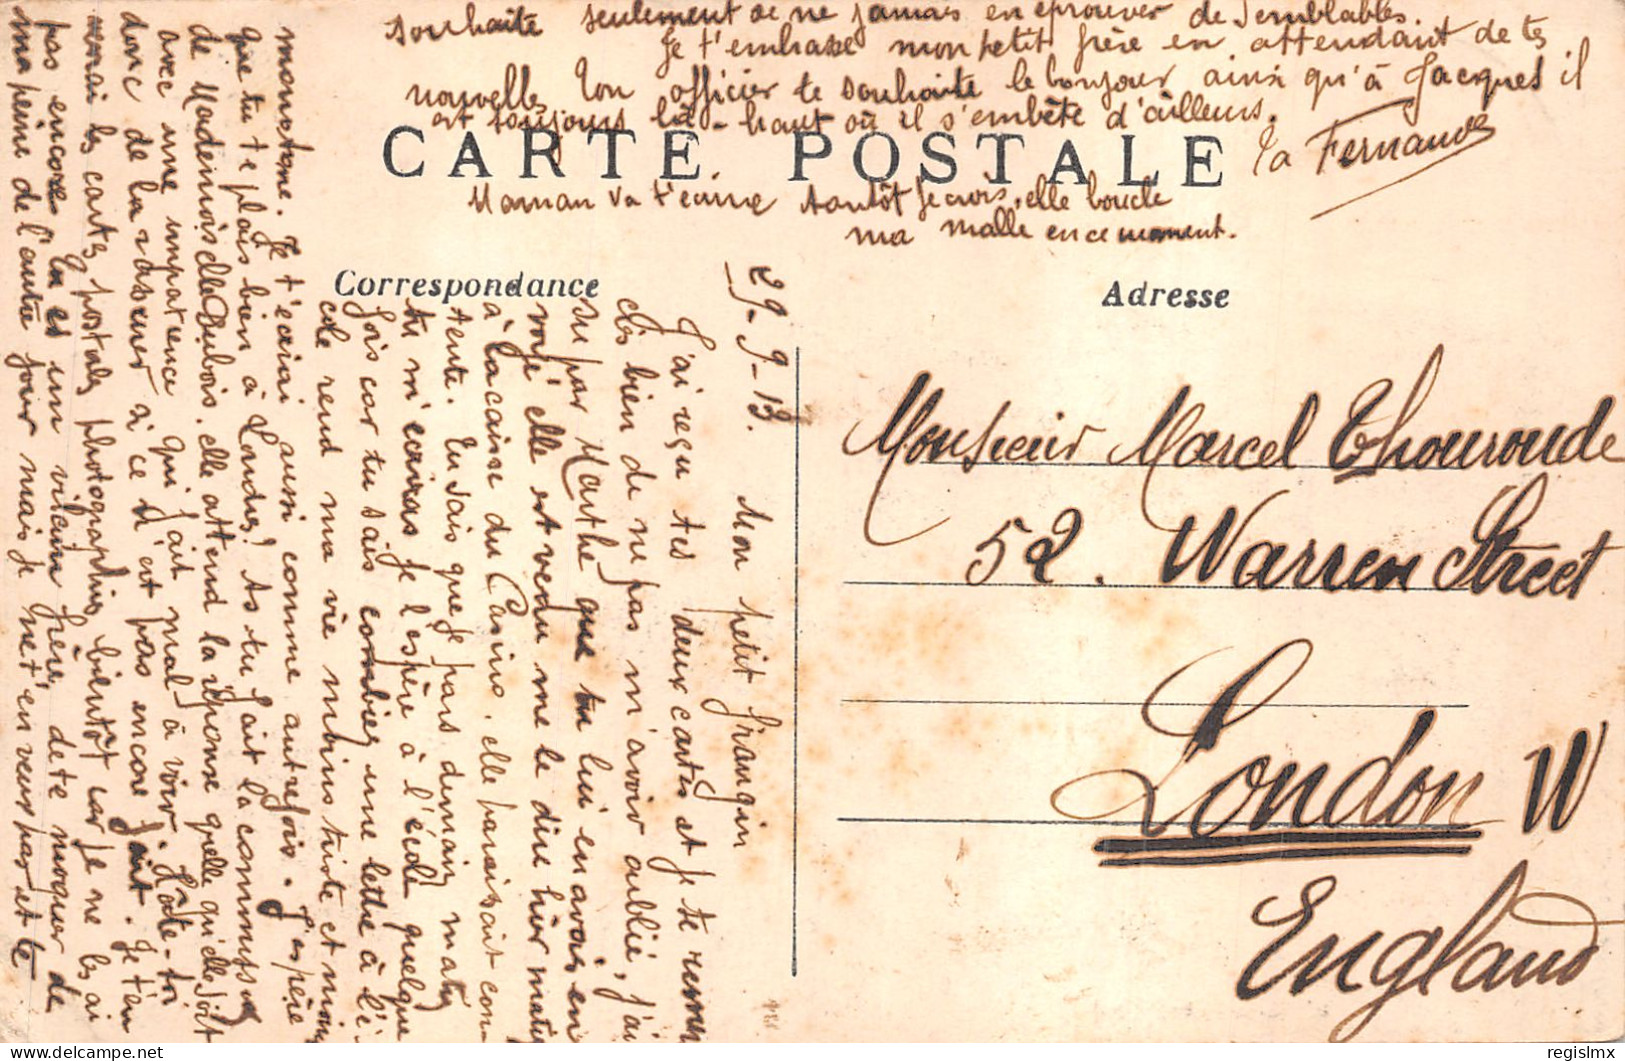 29-9-13.
Mon petit frangin
J'ai reçu tes deux cartes et je te remer
cie bien de ne pas m'avoir oublié, j'ai
su par Marthe que tu lui en avais en
voyé elle est venu me le dire hier matin
à la caisse du Casino. elle paraissait con-
tente. Tu sais que je pars demain matin
tu m'écriras je l'espère à l'école quelque
fois car tu sais combien une lettre à l'é-
cole rend ma vie moins triste et moins
monotone. Je t'écrirai aussi comme autrefois. J'espère
que tu te plais bien à Londres! As tu fait la commission
de Mademoiselle Dubois. elle attend la réponse quelle qu'elle soit
avec une impatience qui fait mal à voir. Hâte-toi
donc de la rassurer si ce n'est pas encore fait. Je t'en
verrai les cartes postales photographies bientôt car je ne les ai
pas encore. Tu es un vilain frère, de te moquer de
ma peine de l'autre jour mais je ne t'en veux pas et te
souhaite seulement de ne jamais en éprouver de semblables.
Je t'embrasse mon petit frère en attendant de tes
nouvelles Ton officier te souhaite le bonjour ainsi qu'à Jacques il
est toujours là-haut où il s'embête d'ailleurs.
Ta Fernande
CARTE POSTALE
Maman va t'écrire tantôt je crois, elle boucle
ma malle en ce moment.
Correspondance
Adresse
Monsieur Marcel Thouroude
52. Warren Street
London W
England
regislmx